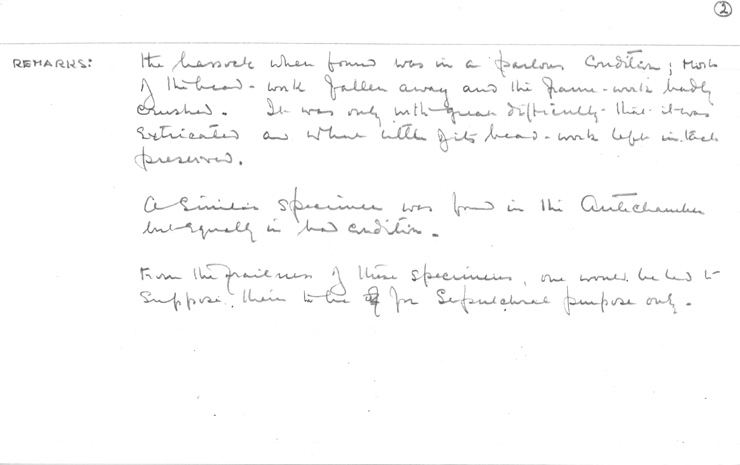 ②
REMARKS: The hassock when found was in a parlous condition; most
of the bead-work fallen away and the frame-work badly
crushed. It was only with great difficulty that it was
extricated and what little of its bead-work left intact
preserved.
A similar specimen was found in the Antechamber
but equally in bad condition.
From the frailness of these specimens, one would be led to
suppose them to be for Sepulchral purpose only.